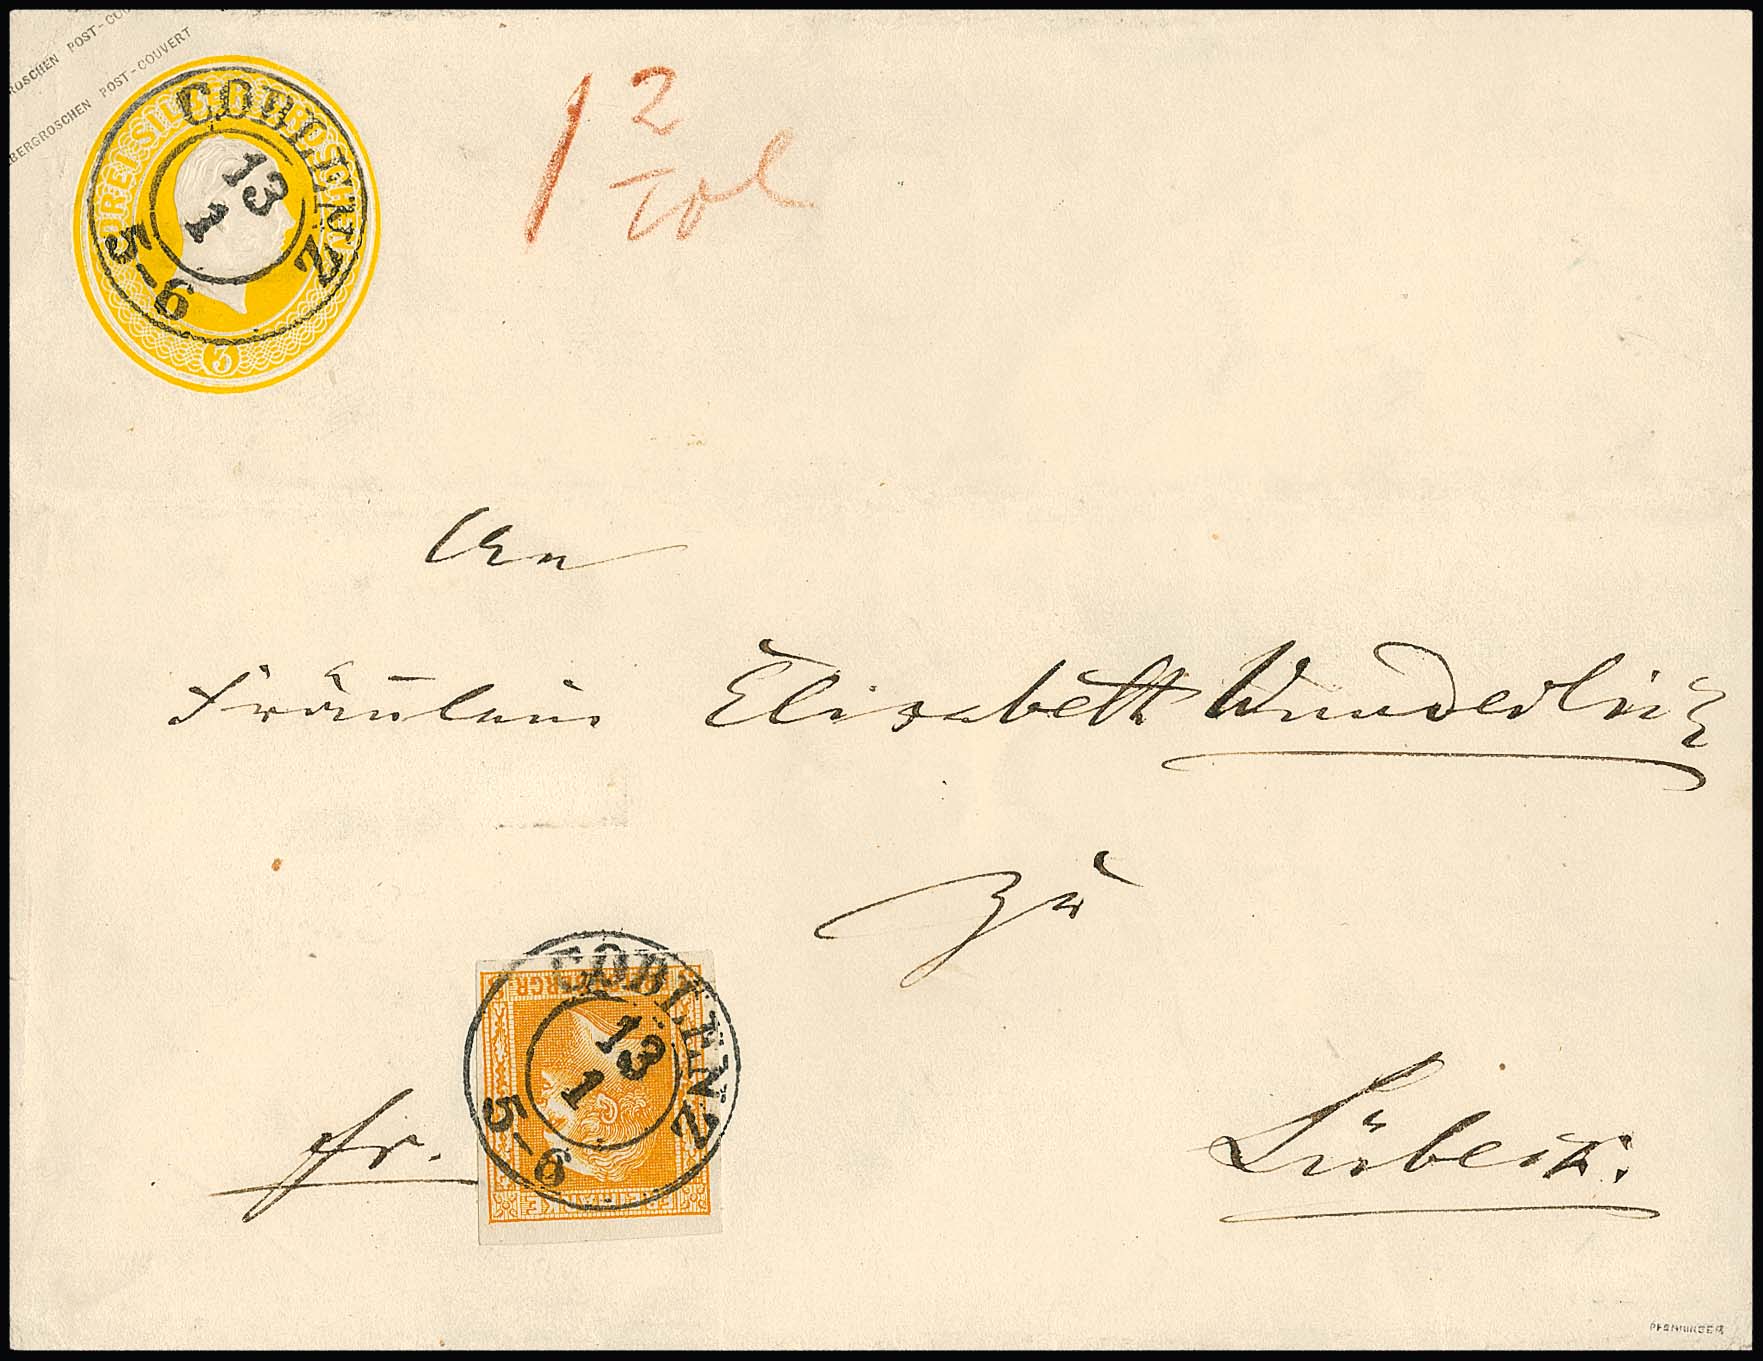 ROSCHEN POST-COU
BERGROSCHEN POST-COUVERT
DREI SILBERGROSCHEN
3
COBLENZ
13
1
5-6
1 2/10 l
An
Fräulein Elisabeth Wunderlich
zu
COBLENZ
13
1
5-6
SILBERGR
FREIMARKE
fr.
Lübeck.
PFENNINGER